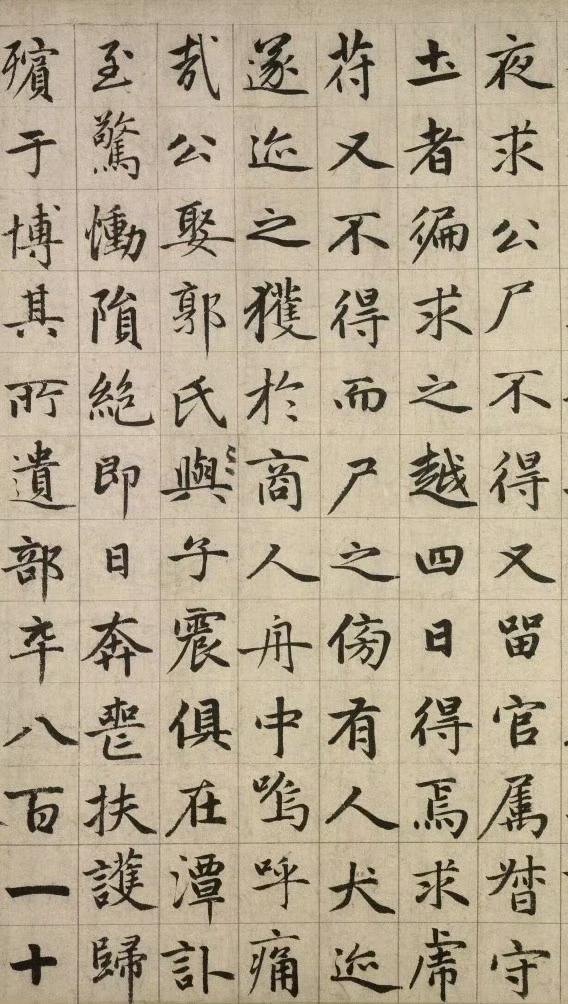 夜求公尸不得又留官属督守
土者徧求之越四日得焉求虎
苻又不得而尸之傍有人犬迹
遂迹之獲於商人舟中嗚呼痛
哉公娶郭氏與子震俱在潭訃
至驚慟隕絶即日奔喪扶護歸
殯于博其所遺部卒八百一十